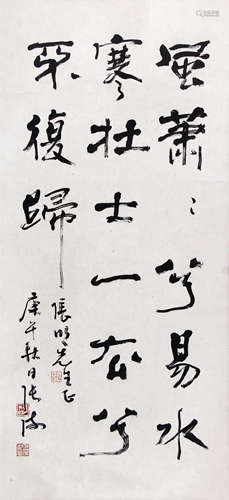 風蕭〻兮易水
寒壮士一去兮
不復歸
張明先生正
庚午秋日張海